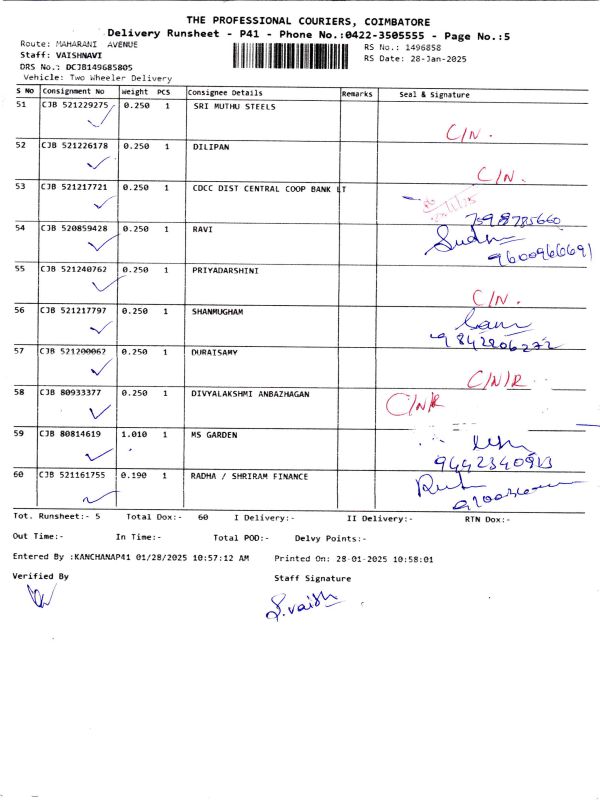 THE PROFESSIONAL COURIERS, COIMBATORE
Delivery Runsheet - P41 - Phone No.:0422-3505555 - Page No.:5
Route: MAHARANI AVENUE
RS No.: 1496858
Staff: VAISHNAVI
RS Date: 28-Jan-2025
DRS No.: DCJB149685805
Vehicle: Two Wheeler Delivery
S No Consignment No Weight PCS Consignee Details Remarks Seal & Signature
51 CJB 521229275 0.250 1 SRI MUTHU STEELS C/N.
52 CJB 521226178 0.250 1 DILIPAN C/N.
53 CJB 521217721 0.250 1 CDCC DIST CENTRAL COOP BANK LT 7598785660
54 CJB 520859428 0.250 1 RAVI 9600966691
55 CJB 521240762 0.250 1 PRIYADARSHINI C/N.
56 CJB 521217797 0.250 1 SHANMUGHAM 9842206272
57 CJB 521200062 0.250 1 DURAISAMY C/N/R
58 CJB 80933377 0.250 1 DIVYALAKSHMI ANBAZHAGAN C/N/R
59 CJB 80814619 1.010 1 MS GARDEN
60 CJB 521161755 0.190 1 RADHA / SHRIRAM FINANCE
Tot. Runsheet:- 5 Total Dox:- 60 I Delivery:- II Delivery:- RTN Dox:-
Out Time:- In Time:- Total POD:- Delvy Points:-
Entered By :KANCHANAP41 01/28/2025 10:57:12 AM Printed On: 28-01-2025 10:58:01
Verified By Staff Signature
S.vaish